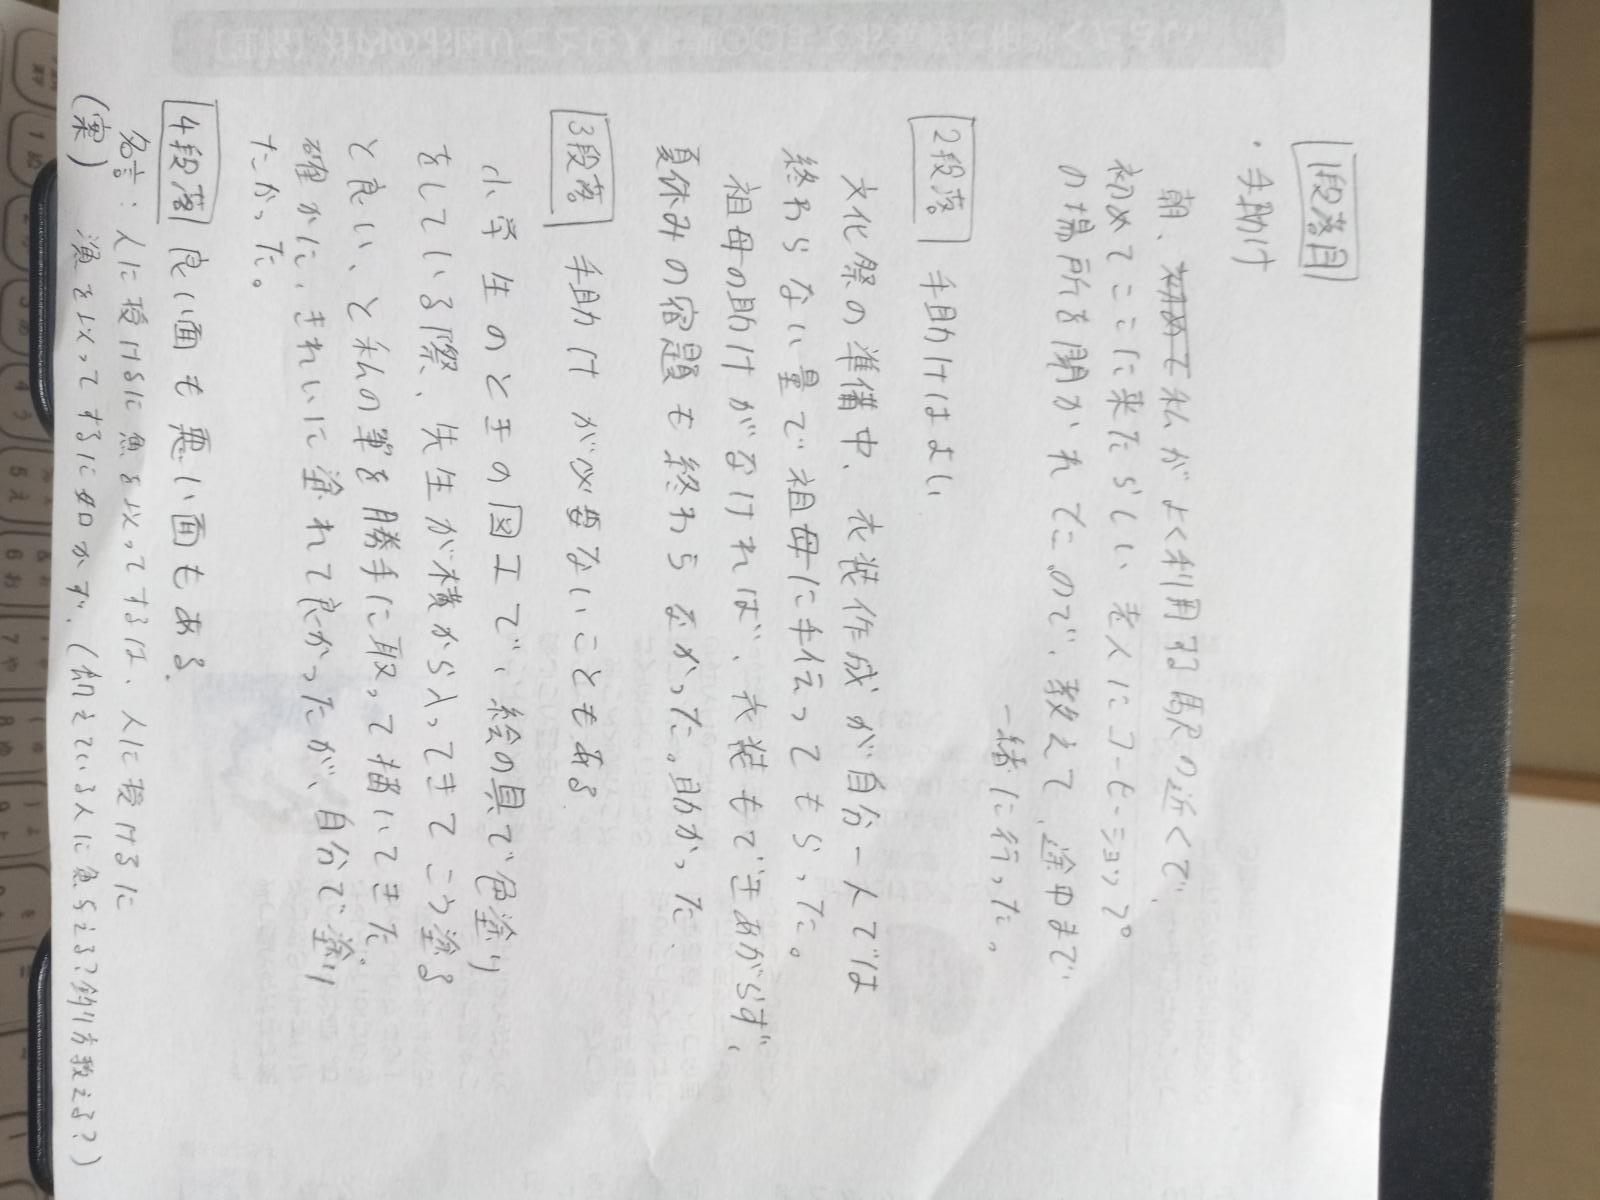 1段落目
・手助け
朝、初めて私がよく利用する駅の近くで、
初めてここに来たらしい老人にコーヒーショップ
の場所を聞かれたので、教えて、途中まで
一緒に行った。
2段落 手助けはよい
文化祭の準備中、衣装作成が自分一人では
終わらない量で祖母に手伝ってもらった。
祖母の助けがなければ、衣装もできあがらず、
夏休みの宿題も終わらなかった。助かった、
3段落 手助けが必要ないこともある
小学生のときの図工で、絵の具で色塗り
をしている際、先生が横から入ってきてこう塗る
と良い、と私の筆を勝手に取って描いてきた。
確かに、きれいに塗れて良かったが、自分で塗り
たかった。
4段落 良い面も悪い面もある.
名言:人に授けるに魚を以ってするは、人に授けるに
(案) 漁を以ってするに如かず.(飢えている人に魚与える?釣り方教える?)